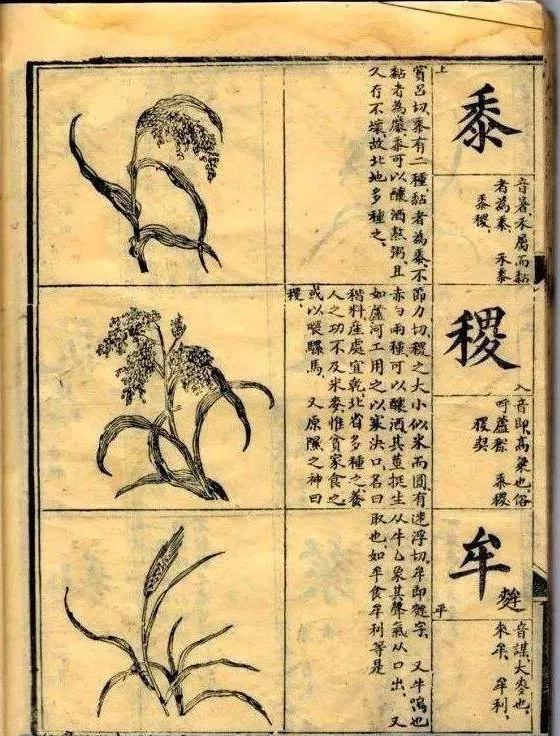 上
黍
音暑，禾屬而黏
者為黍 禾黍
黍稷
賞呂切，黍有二種，黏者為黍，不
黏者為糜，黍可以釀酒熬粥，且
久存不壞故北地多種之。
入
稷
音即，高粱也，俗
呼蘆穄 黍稷
稷契
節力切，稷之大小似米而圓，有
赤白兩種可以釀酒其莖挺生
如蘆河工用之以塞決口，名曰
稭料，庄處宜乾北省多種之養
人之功不及米麥惟貧家食之
或以喂騾馬 又原隰之神曰
稷。
平
牟 麰
音謀，大麥也。
來牟，牟利，
迷浮切，牟即麰字，又牛鳴也
从牛厶象其聲氣从口出，又
取也，如牟食牟利等是